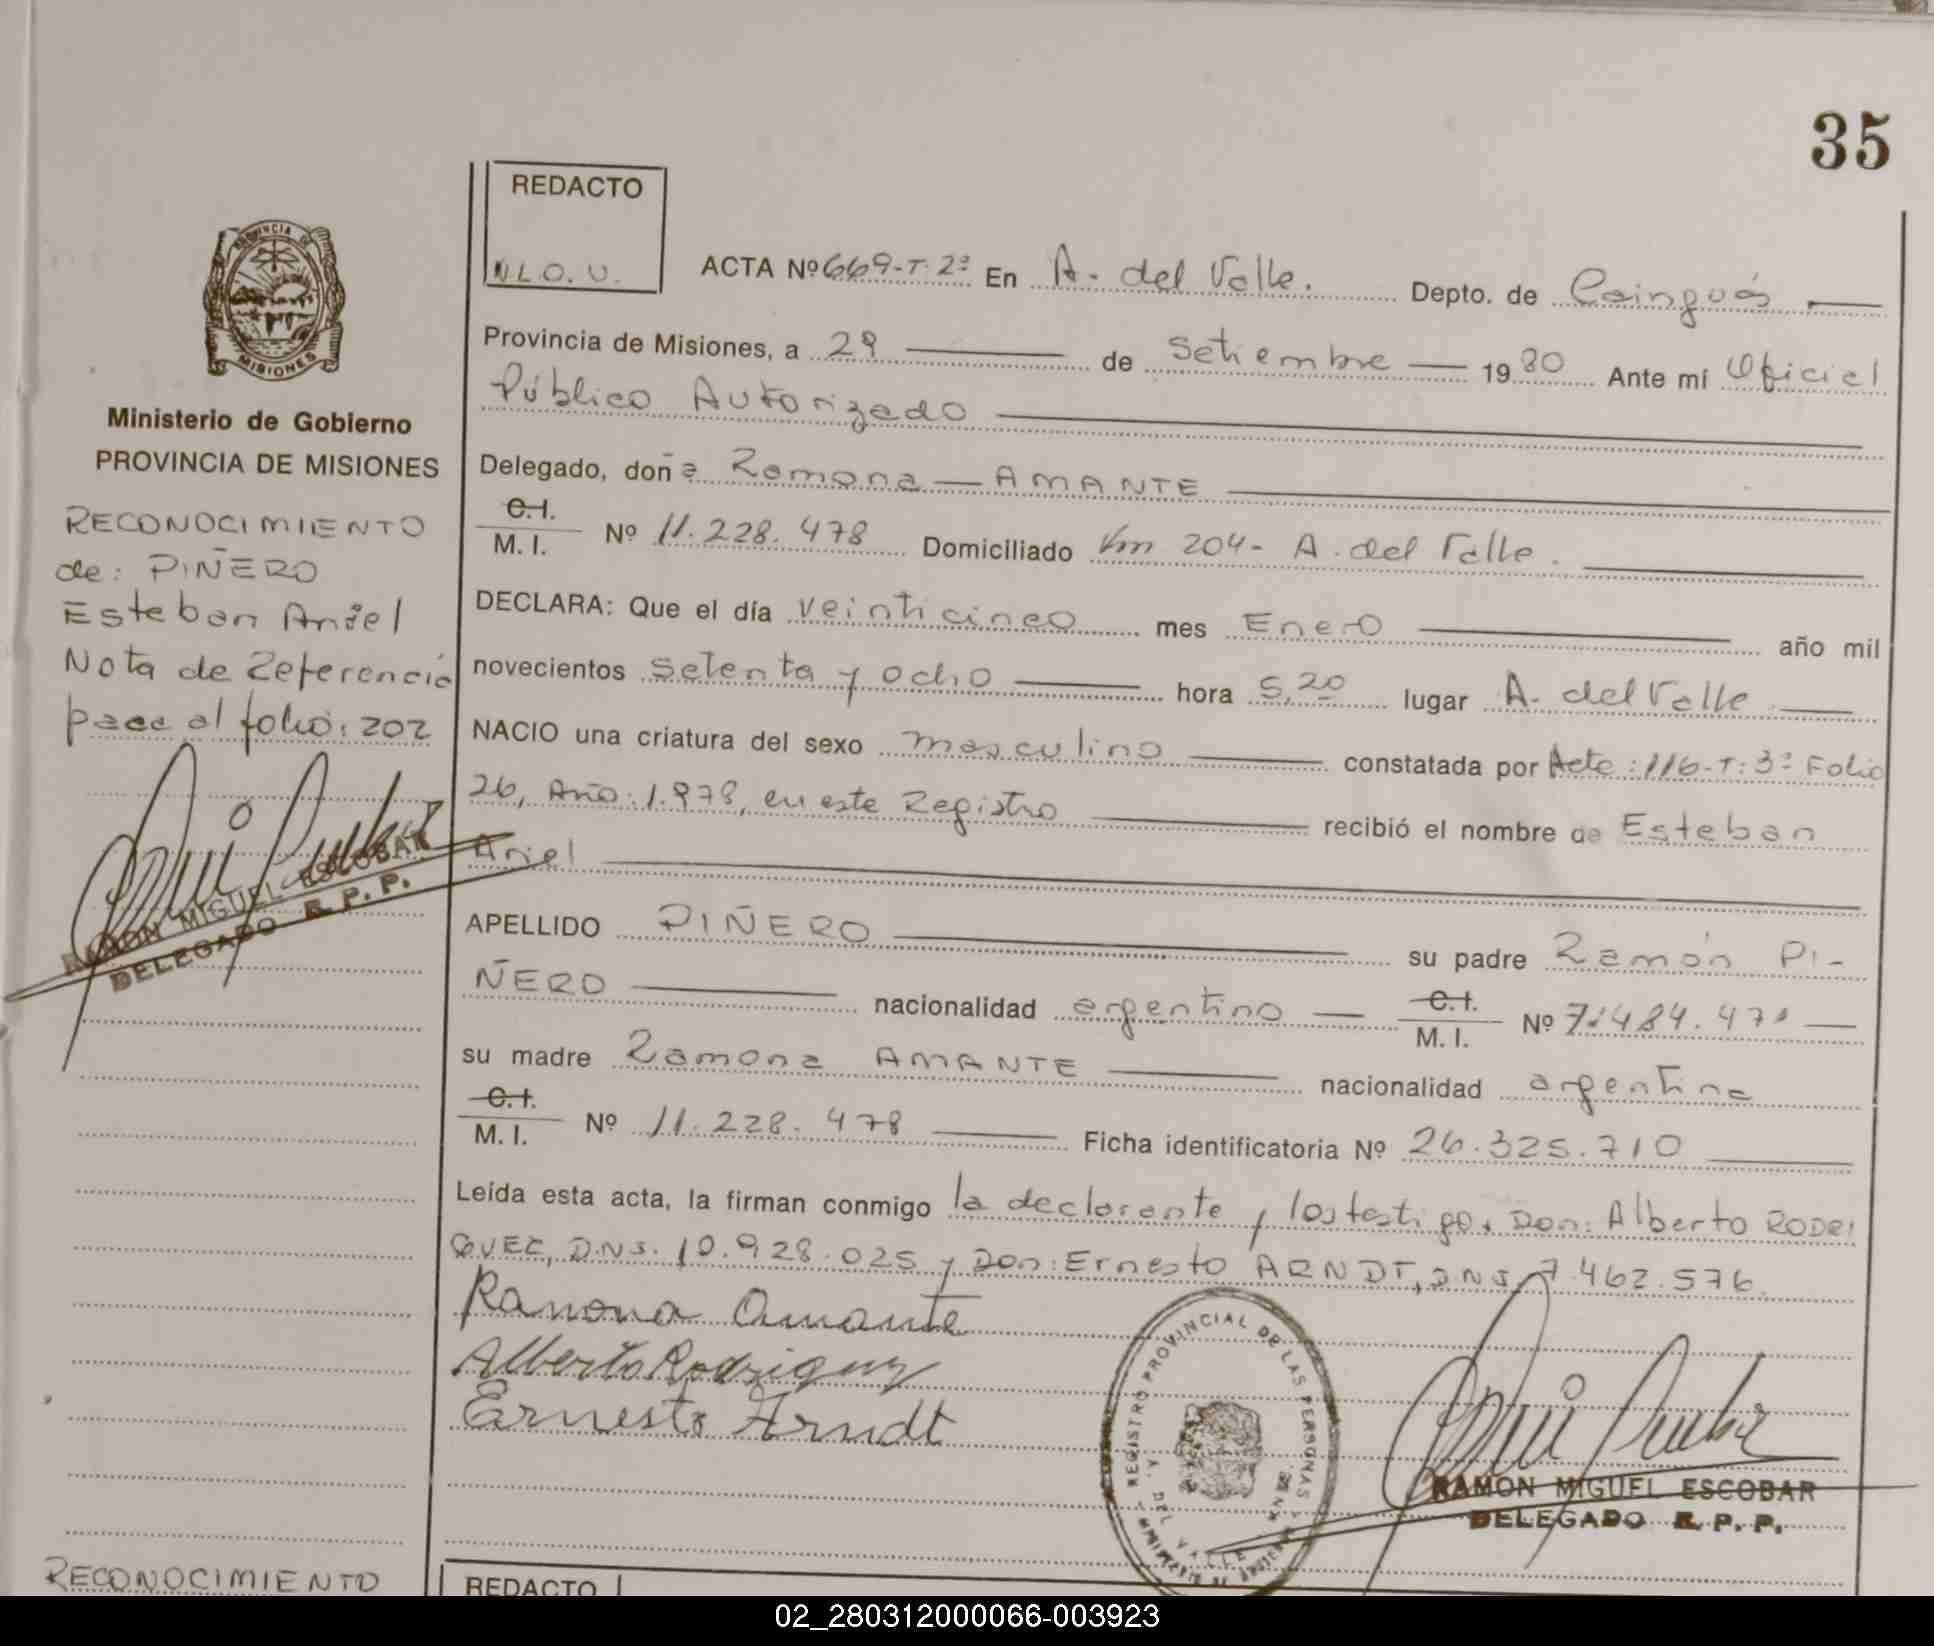 35
REDACTO
N.L.O.U.
ACTA Nº 669-T.2º En A. del Valle. Depto. de Cainguás
Provincia de Misiones, a 29 de Setiembre 1980 Ante mi Oficial
Público Autorizado
Delegado, doña Ramona AMANTE
C.I.
M. I. Nº 11.228.478 Domiciliado Km 204- A. del Valle.
DECLARA: Que el día veinticinco mes Enero año mil
novecientos setenta y ocho hora 5,20 lugar A. del Valle
NACIO una criatura del sexo masculino constatada por Acta: 116-T: 3º Folio
26, Año: 1.978, en este Registro recibió el nombre de Esteban
Ariel
APELLIDO PIÑERO su padre Ramón PI-
ÑERO nacionalidad argentino C.I.
M. I. Nº
su madre Ramona AMANTE nacionalidad argentina
C.I.
M. I. Nº 11.228.478 Ficha identificatoria Nº 26.325.710
Leída esta acta, la firman conmigo la declarante y los testigos Don: Alberto RODRI
GUEZ, D.N.I. 10.928.025 y Don: Ernesto ARNDT, D.N.I. 7.462.576.
Ramona Amante
Alberto Rodriguez
Ernesto Arndt
REGISTRO PROVINCIAL DE LAS PERSONAS
DEL VALLE
RAMON MIGUEL ESCOBAR
DELEGADO R. P. P.
PROVINCIA DE
MISIONES
Ministerio de Gobierno
PROVINCIA DE MISIONES
RECONOCIMIENTO
de: PIÑERO
Esteban Ariel
Nota de Referencia
pasa al folio: 202
RAMON MIGUEL ESCOBAR
DELEGADO R. P. P.
RECONOCIMIENTO
REDACTO
02_280312000066-003923